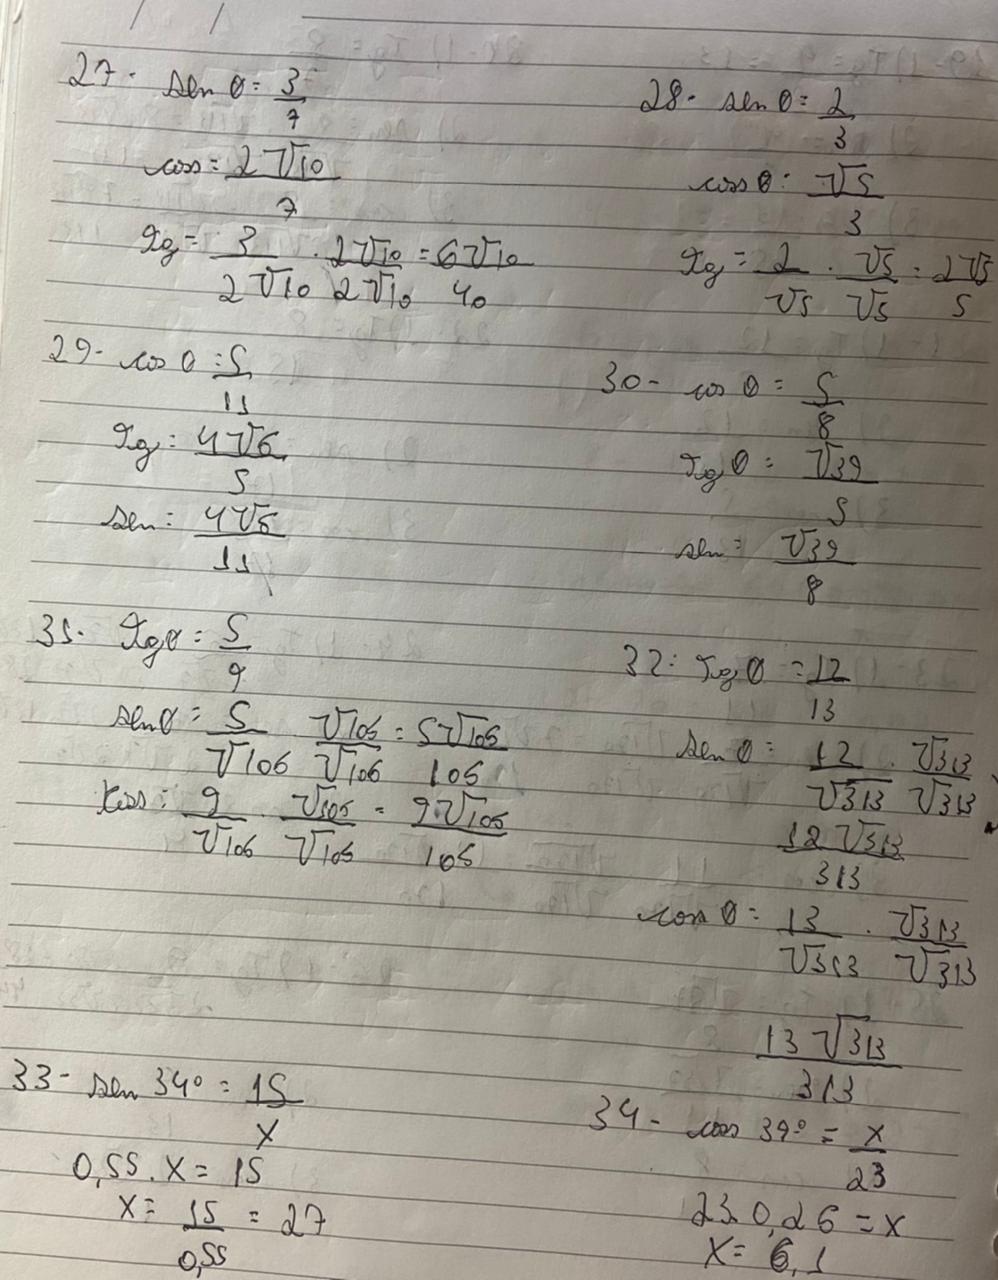 27. sen θ = 3/7
cos = 2√10/7
Tg = 3/2√10 . 2√10/2√10 = 6√10/40
28. sen θ = 2/3
cos θ: √5/3
Tg = 2/√5 . √5/√5 = 2√5/5
29- cos θ = 5/11
Tg = 4√6/5
sen = 4√6/11
30- cos θ = 5/8
Tg θ = √39/5
sen = √39/8
31. Tg θ = 5/9
sen θ = 5/√106 √106/√106 = 5√106/106
cos = 9/√106 . √106/√106 = 9√106/106
32: Tg θ = 12/13
sen θ = 12/√313 . √313/√313
12√313/313
cos θ = 13/√313 . √313/√313
13√313/313
33- sen 34° = 15/x
0,55 . x = 15
x = 15/0,55 = 27
34- cos 39° = x/23
23.0,26 = x
x = 6,1